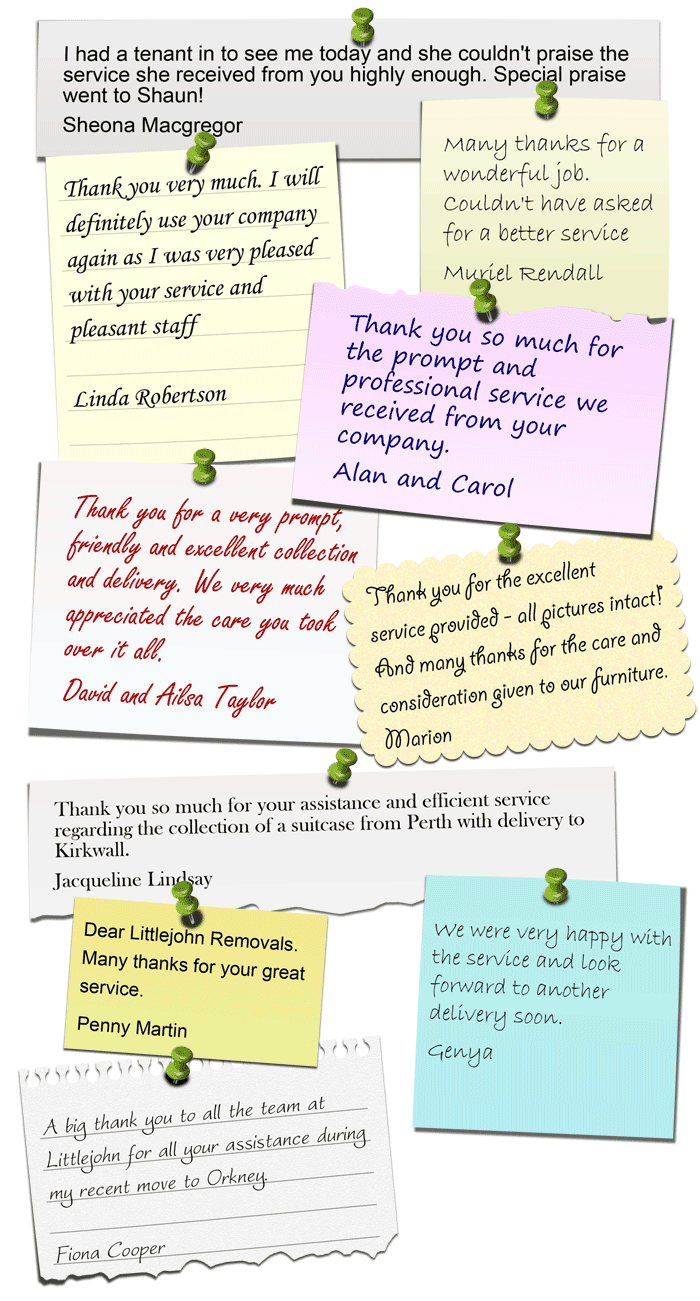 I had a tenant in to see me today and she couldn't praise the
service she received from you highly enough. Special praise
went to Shaun!
Sheona Macgregor
Many thanks for a
wonderful job.
Couldn't have asked
for a better service
Muriel Rendall
Thank you very much. I will
definitely use your company
again as I was very pleased
with your service and
pleasant staff
Linda Robertson
Thank you so much for
the prompt and
professional service we
received from your
company.
Alan and Carol
Thank you for a very prompt,
friendly and excellent collection
and delivery. We very much
appreciated the care you took
over it all.
David and Ailsa Taylor
Thank you for the excellent
service provided - all pictures intact!
And many thanks for the care and
consideration given to our furniture.
Marion
Thank you so much for your assistance and efficient service
regarding the collection of a suitcase from Perth with delivery to
Kirkwall.
Jacqueline Lindsay
Dear Littlejohn Removals.
Many thanks for your great
service.
Penny Martin
We were very happy with
the service and look
forward to another
delivery soon.
Genya
A big thank you to all the team at
Littlejohn for all your assistance during
my recent move to Orkney.
Fiona Cooper